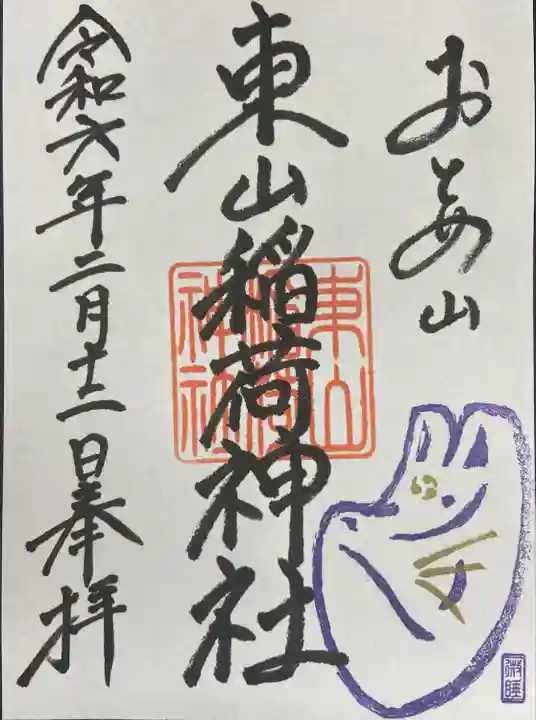 おとめ山
東山稲荷神社
東山
稲荷
神社
令和六年二月十二日奉拝